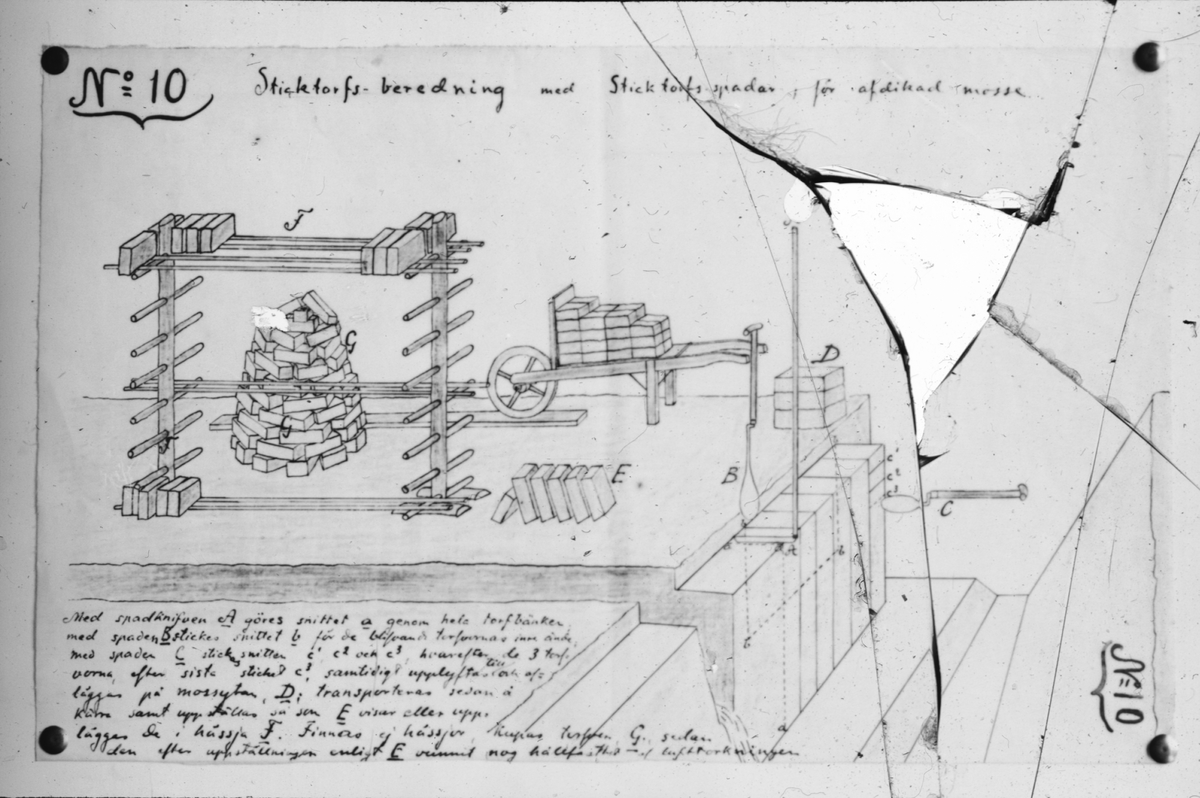 No 10
Sticktorfs-beredning med Sticktorfs spadar, för afdikad mosse
F
G
G
F
D
B
E
c¹
c²
c³
C
a
b
b
a
Med spadknifven A göres snittet a genom hela torfbänken
med spaden B stickes snittet b för de blifvande torfvornas inre ände,
med spaden C stickes snitten c¹ c² och c³, hvarefter de 3 torf-
vorna, efter sista sticket c³, samtidigt upplyftas och
läggas på mossytan, D; transporteras sedan å
kärra samt uppställas så som E visar eller upp-
lägges de i hässja F. Finnas ej hässjor, kupas torfven, G, sedan
den efter uppställningen enligt E vunnit nog hållfasthet lufttorkningen
No 10